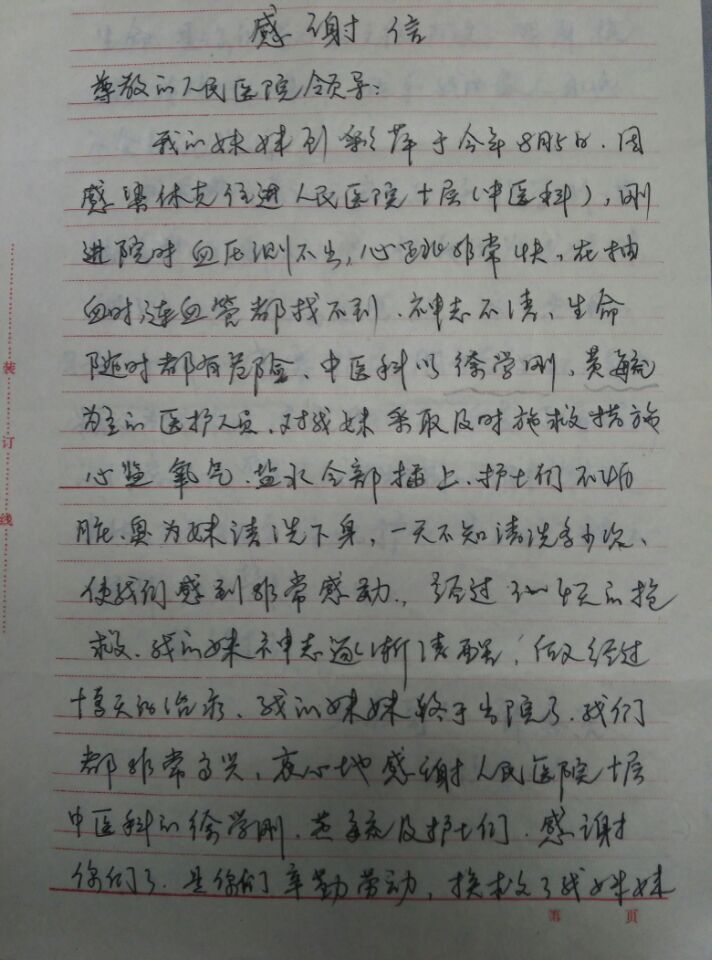 感谢信
尊敬的人民医院领导：
我的妹妹到彩萍于今年8月5日.因
感染休克住进人民医院十层(中医科),刚
进院时血压测不出,心跳非常快,在抽
血时,连血管都找不到.神志不清、生命
随时都有危险、中医科以徐学刚、黄毓
为主的医护人员、对我妹采取及时施救措施
心监氧气、盐水全部插上、护士们不怕
脏、臭为妹清洗下身,一天不知清洗多少次、
使我们感到非常感动.,经过3-4天的抢
救、我的妹神志逐渐清醒,但又经过
十多天的治疗、我的妹妹终于出院了.我们
都非常高兴,衷心地感谢人民医院十层
中医科的徐学刚、黄毓及护士们.感谢
你们了.是你们辛勤劳动,挽救了我妹妹
装
订
线
第 页